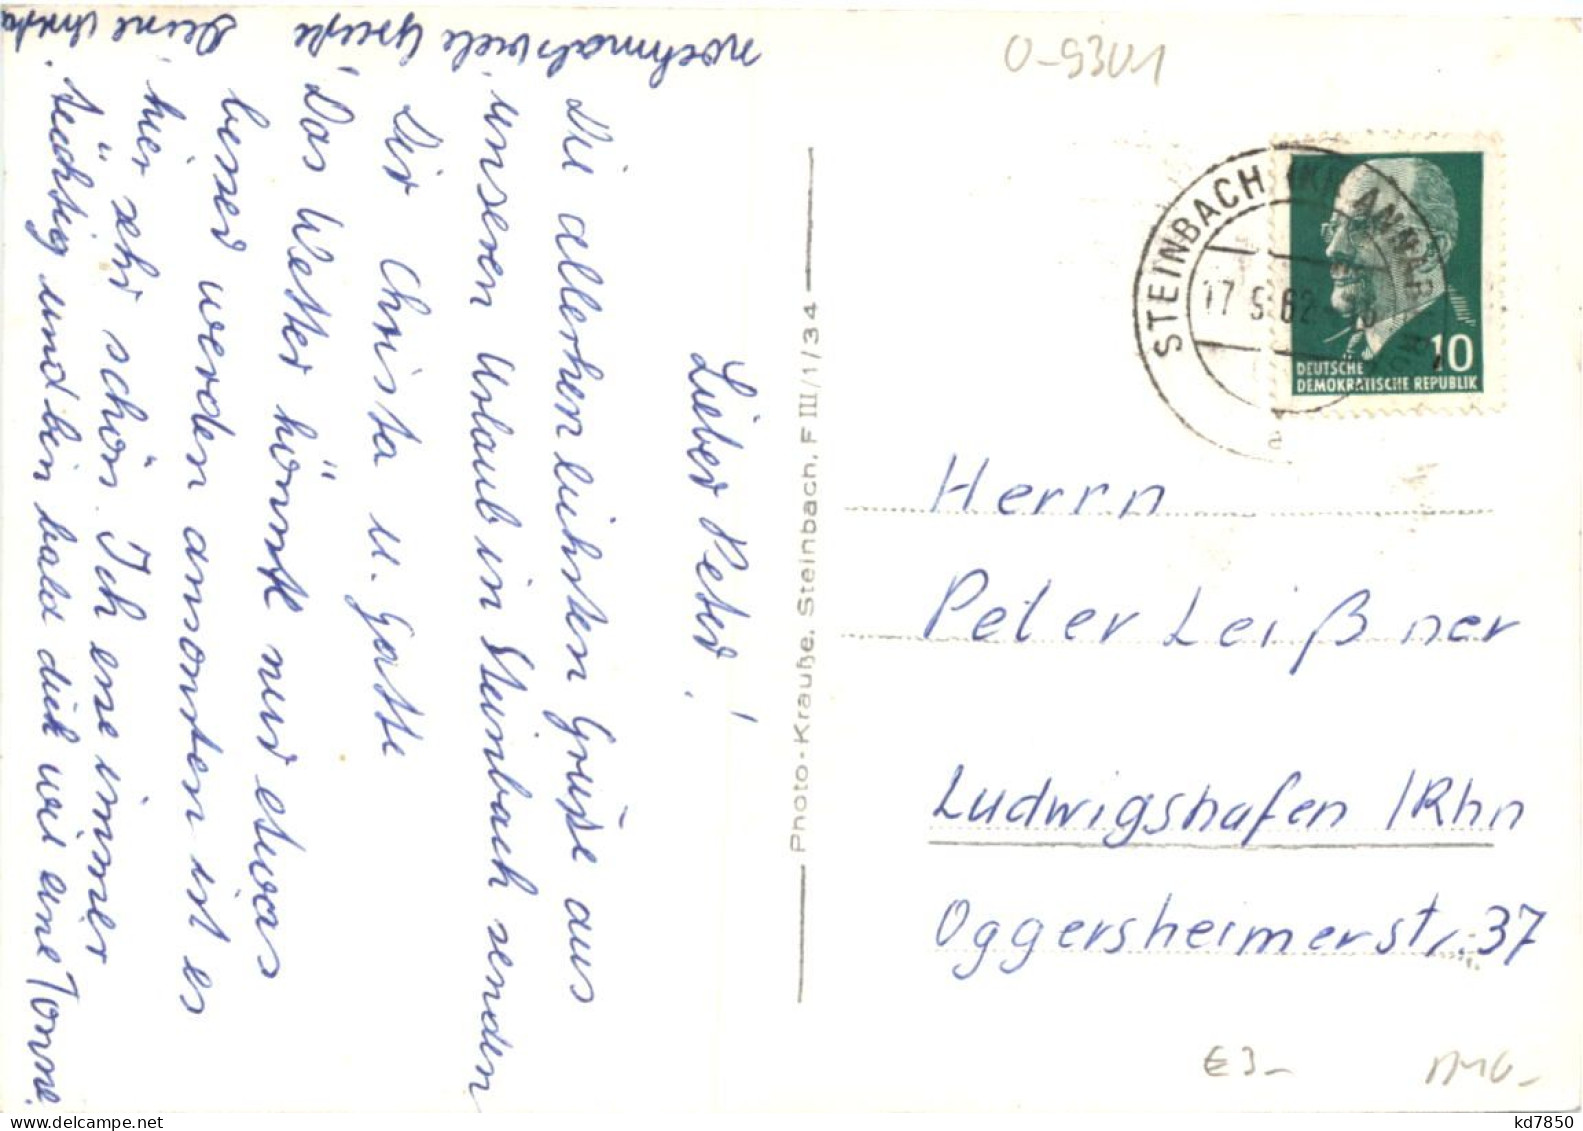 Lieber Peter!
Die allerherzlichsten Grüße aus
unseren Urlaub in Steinbach senden
Dir Christa u. Gatte
Das Wetter könnte nur etwas
besser werden ansonsten ist es
hier sehr schön. Ich esse immer
tüchtig und bin bald dick wie eine Tonne.
nochmals viele Grüße Deine Christa
Photo-Krauße, Steinbach, F III/1/34
O-9301
STEINBACH (KR ANNABERG
17.9.62
10
DEUTSCHE
DEMOKRATISCHE REPUBLIK
Herrn
Peter Leißner
Ludwigshafen /Rhn
Oggersheimerstr. 37
€ 3-
kd7850